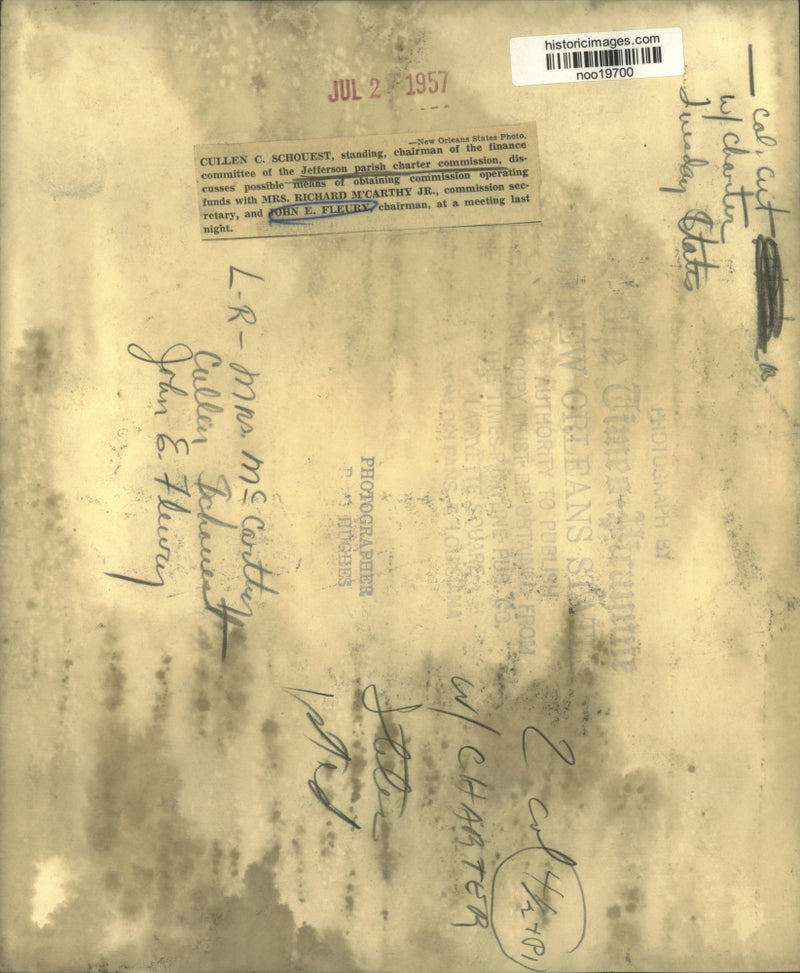 historicimages.com
noo19700
JUL 2 1957
—New Orleans States Photo.
CULLEN C. SCHOUEST, standing, chairman of the finance
committee of the Jefferson parish charter commission, dis-
cusses possible means of obtaining commission operating
funds with MRS. RICHARD M'CARTHY JR., commission sec-
retary, and JOHN E. FLEURY, chairman, at a meeting last
night.
col. cut
w/ charter
Tuesday States
L-R - Mrs. McCarthy
Cullen Schouest
John E. Fleury
PHOTOGRAPH BY
The Times-Picayune
NEW ORLEANS STATES
AUTHORITY TO PUBLISH
COPY MUST BE OBTAINED FROM
THE TIMES-PICAYUNE PUB. CO.
LAFAYETTE SQUARE
NEW ORLEANS, LOUISIANA
PHOTOGRAPHER
HUGHES
2 col
W/ CHARTER
States
1st rd